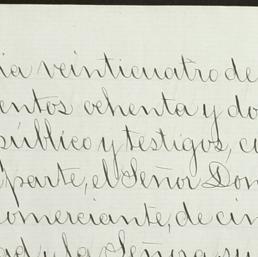 ia veinticuatro de
entos ochenta y do
público y testigos, co
parte, el Señor Don
omerciante, de cin
ad y la Señora su